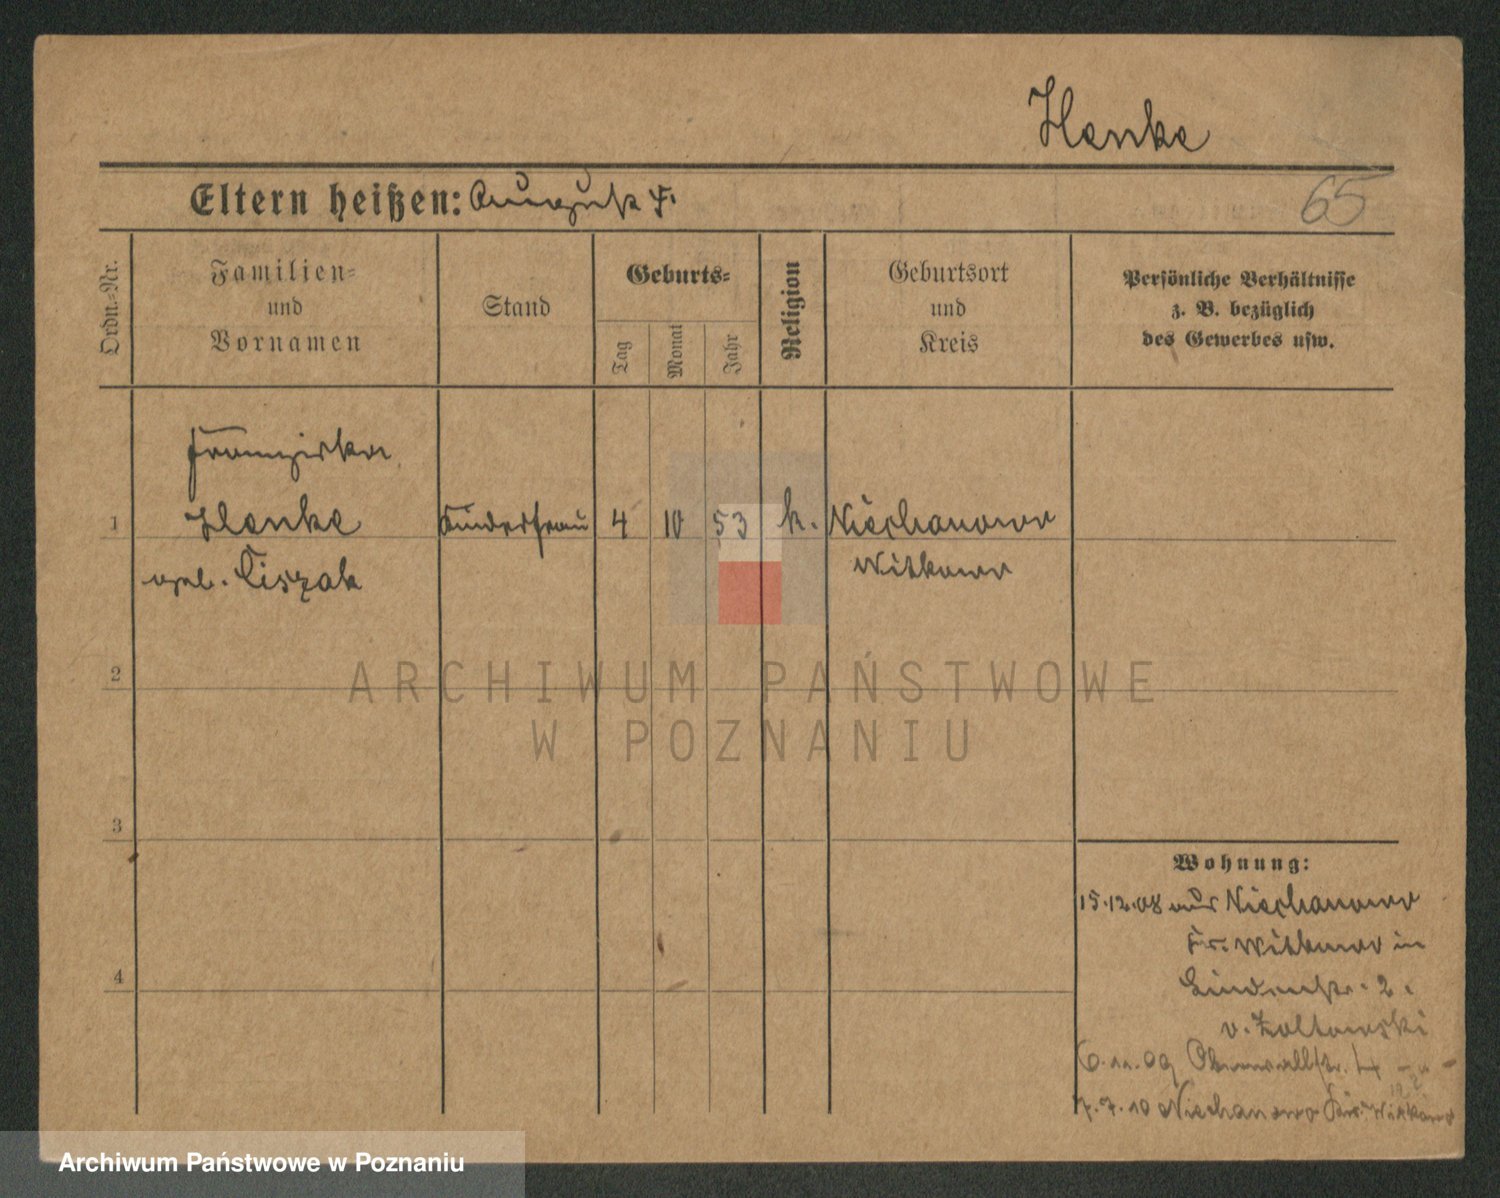 Henke
Eltern heißen: August F.
65
Ordn.-Nr.
Familien-
und
Vornamen
Stand
Geburts-
Tag
Monat
Jahr
Religion
Geburtsort
und
Kreis
Persönliche Verhältnisse
z. B. bezüglich
des Gewerbes usw.
Franziska
1 Henke Kinderfrau 4 10 53 k. Niechanowo
geb. Ciszak Witkowo
2
ARCHIWUM PAŃSTWOWE
W POZNANIU
3
Wohnung:
15.12.08 aus Niechanowo
Kr. Witkowo in
4
Lindenstr. 2.
v. Zoltowski
6.11.09 Oberwallstr. 4
7.7.10 Niechanowo Krs. Witkowo
Archiwum Państwowe w Poznaniu